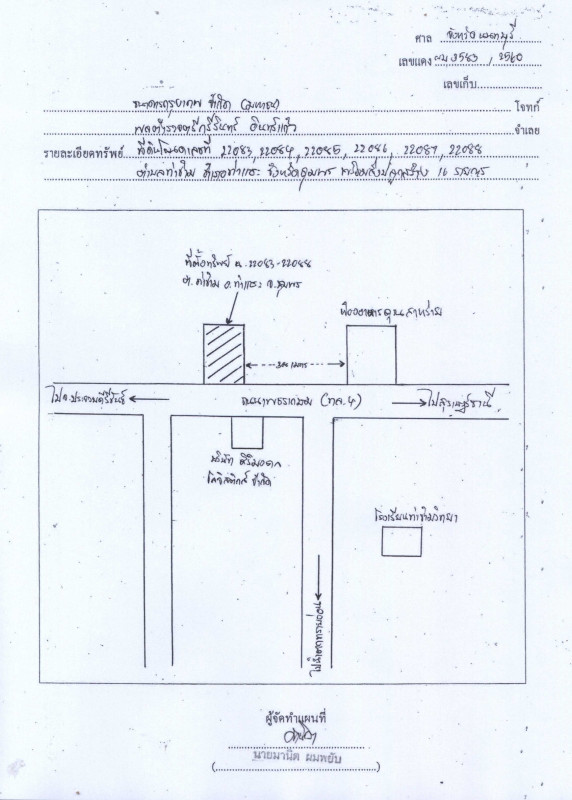 ศาล จังหวัดนนทบุรี
เลขแดง ผบ 3583 / 2560
เลขเก็บ
ธนาคารกรุงเทพ จำกัด (มหาชน) โจทก์
จำเลย
รายละเอียดทรัพย์ ที่ดินโฉนดเลขที่ 22083, 22084, 22085, 22086, 22087, 22088
ตำบลท่าข้าม อำเภอท่าแซะ จังหวัดชุมพร พร้อมสิ่งปลูกสร้าง 16 รายการ
ที่ตั้งทรัพย์ ฉ. 22083-22088
ต. ท่าข้าม อ. ท่าแซะ จ. ชุมพร
ห้องอาหารคุณสาหร่าย
300 เมตร
ไป จ.ประจวบคีรีขันธ์
ถนนเพชรเกษม (ทล. 4)
ไปสุราษฎร์ธานี
บริษัท สิริมงคล
โลจิสติกส์ จำกัด
โรงเรียนท่าข้ามวิทยา
ผู้จัดทำแผนที่
นายมานิต ผมหยิบ